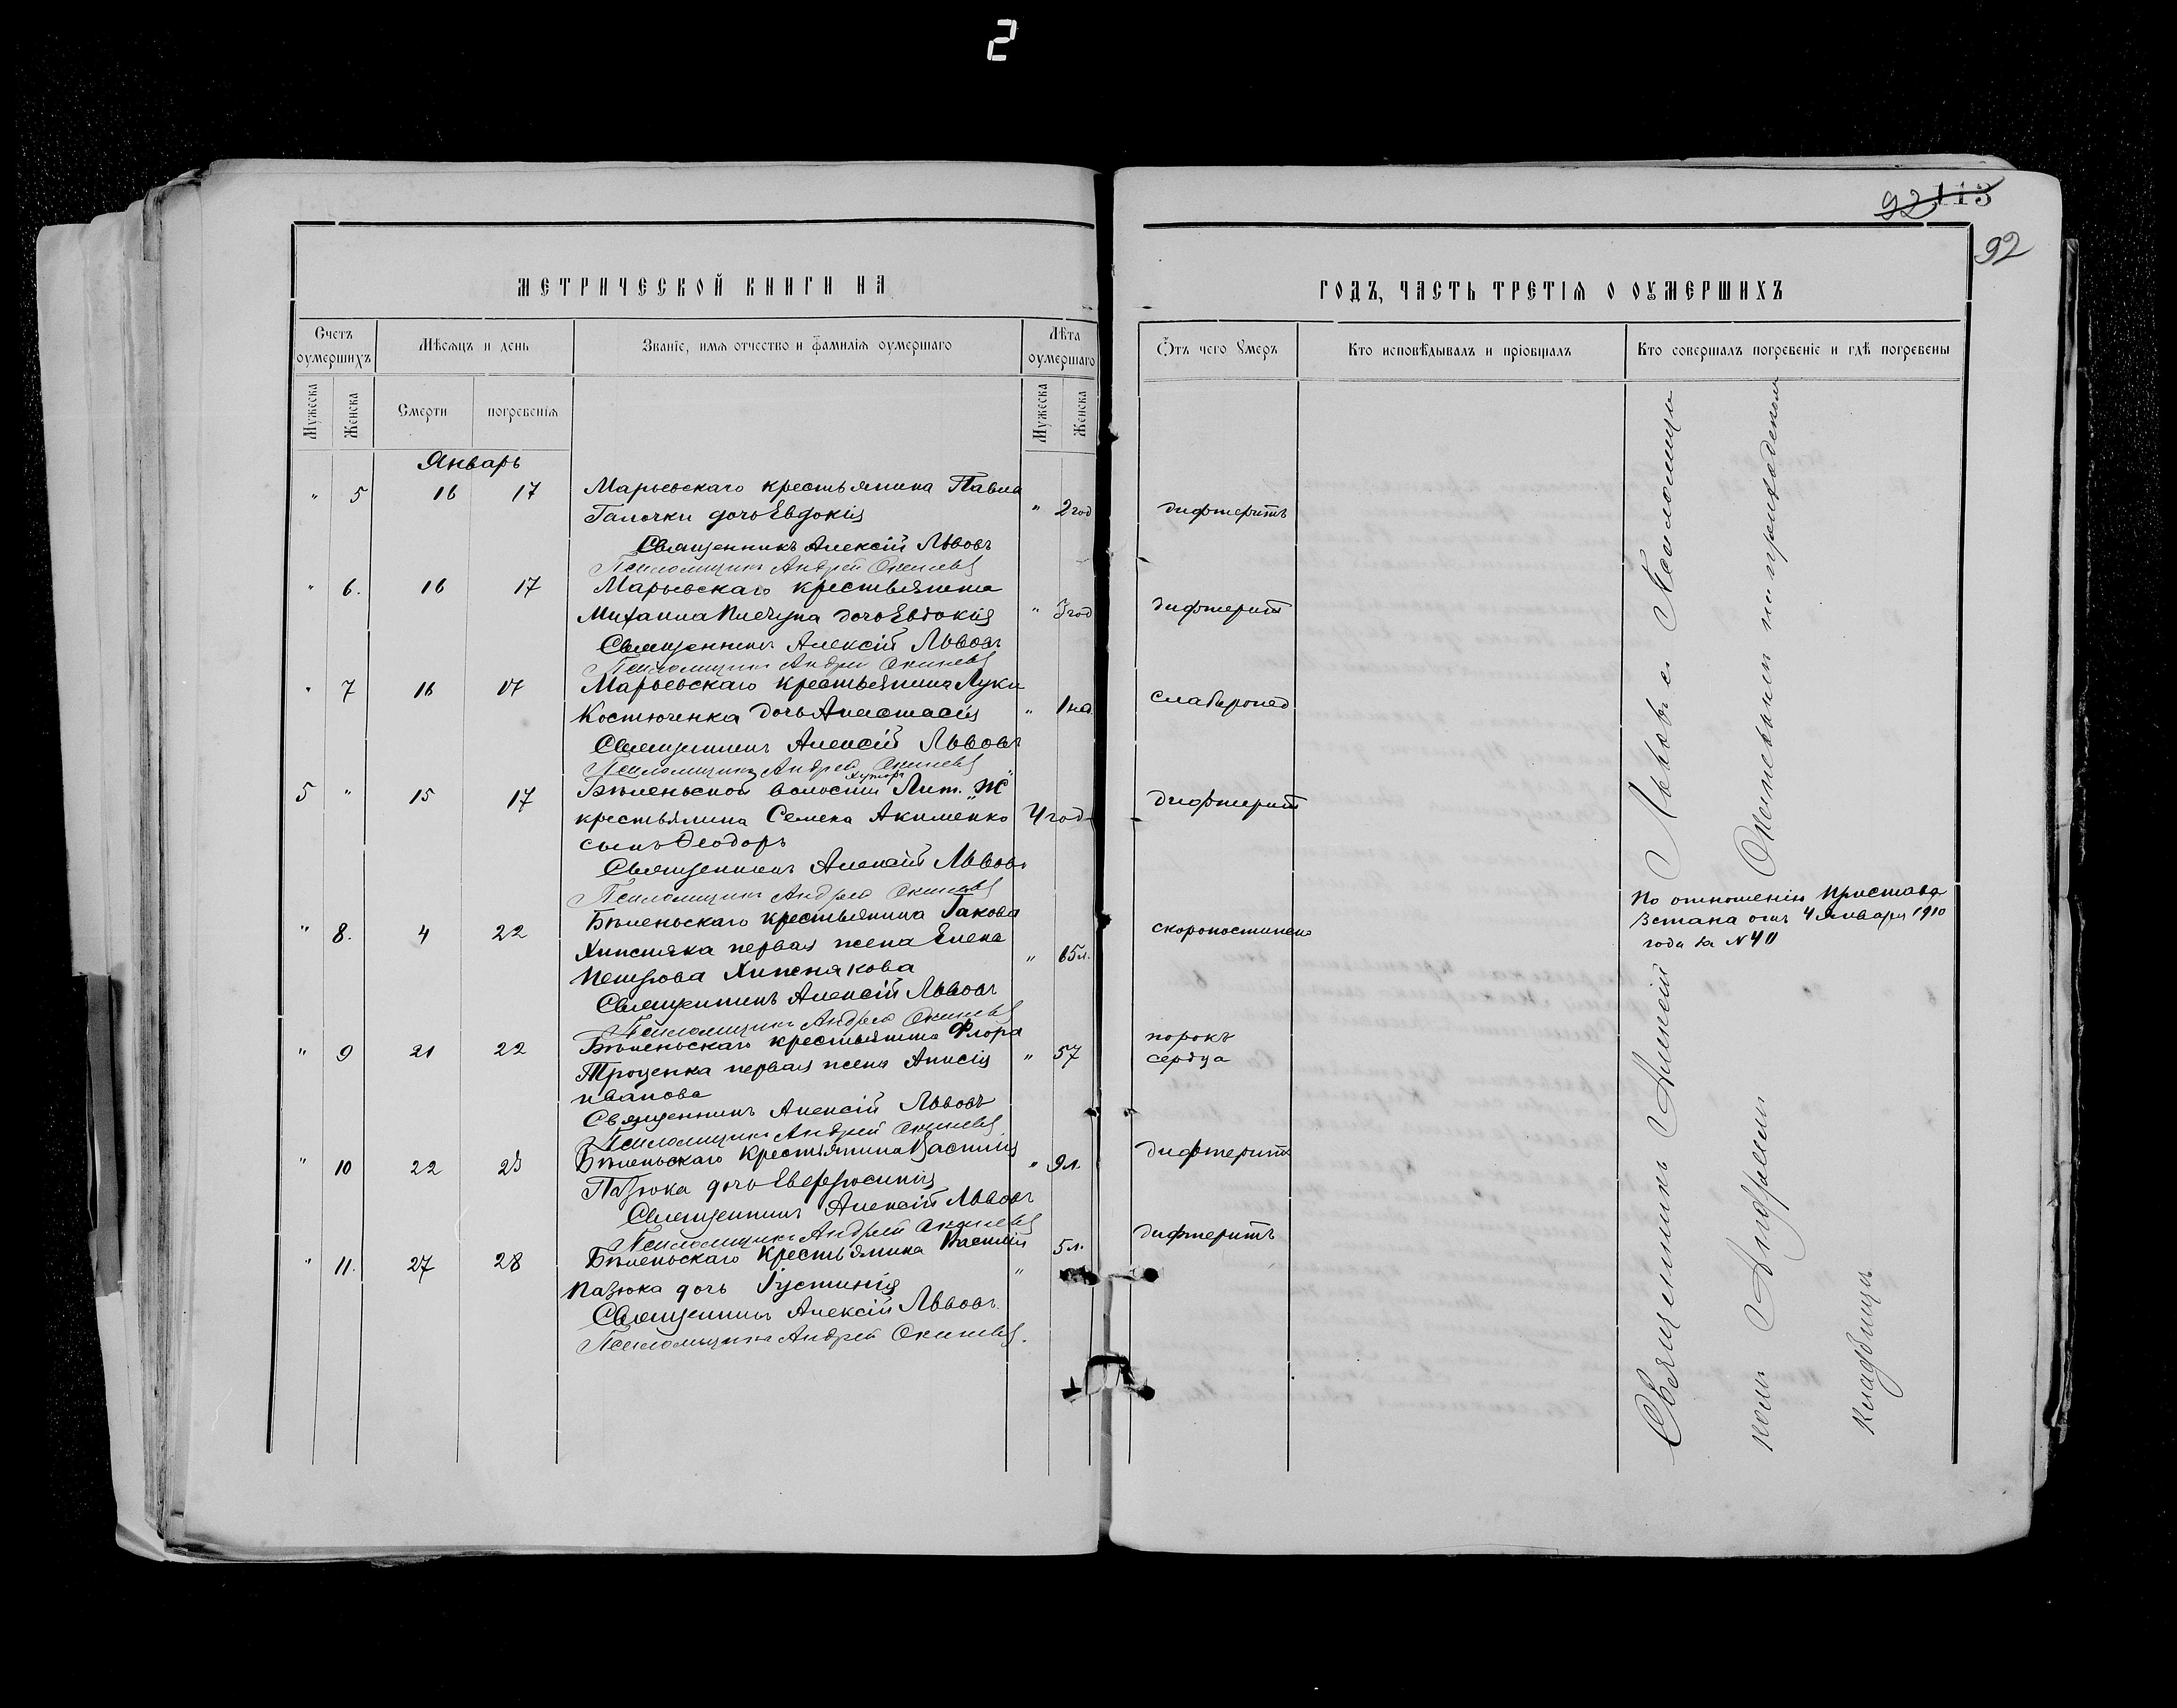 2
92 113
92
МЕТРИЧЕСКОЙ КНИГИ НА
ГОДЪ, ЧАСТЬ ТРЕТІЯ О ОУМЕРШИХЪ
Счетъ оумершихъ
Мѣсяцъ и день
Званіе, имя отчество и фамилія оумершаго
Лѣта оумершаго
Отъ чего умеръ
Кто исповѣдывалъ и пріобщалъ
Кто совершалъ погребеніе и гдѣ погребены
Мужеска
Женска
Смерти
погребенія
Мужеска
Женска
Январь
" 5 16 17 Марьевскаго крестьянина Павла
Галочки дочь Евдокія " 2 год дифтеритъ
Священникъ Алексій Львовъ
Псаломщикъ Андрей
" 6. 16 17 Марьевскаго крестьянина
Михаила дочь Евдокія " 3 год дифтерит
Священникъ Алексій Львовъ
Псаломщикъ Андрей
" 7 16 17 Марьевскаго крестьянина Луки
Костюченка дочь Анастасія " 1 нед.
Священникъ Алексій Львовъ
Псаломщикъ Андрей
5 " 15 17 Бѣленьской волости хуторъ Лит. "Ж"
крестьянина Семена Акименко 4 год дифтерит
сынъ Ѳеодоръ
Священникъ Алексій Львовъ
Псаломщикъ Андрей
" 8. 4 22 Бѣленьскаго крестьянина Іакова
Хижняка первая жена Елена " 65 л. скоропостижно
Петрова Хижнякова
Священникъ Алексій Львовъ
Псаломщикъ Андрей
" 9 21 22 Бѣленьскаго крестьянина Флора
Троценка первая жена Анисія " 57 порокъ
сердца
Иванова
Священникъ Алексій Львовъ
Псаломщикъ Андрей
" 10 22 23 Бѣленьскаго крестьянина Василія
Пазюка дочь Евфросинія " 9 л. дифтерит
Священникъ Алексій Львовъ
Псаломщикъ Андрей
" 11. 27 28 Бѣленьскаго крестьянина Василія
Пазюка дочь Іустинія " 5 л. дифтеритъ
Священникъ Алексій Львовъ.
Псаломщикъ Андрей
По отношенію Пристава
3 стана отъ 4 Января 1910
года за № 40
Священникъ Алексій Львовъ с Псаломщи
комъ Андреемъ на приходскомъ
кладбищѣ